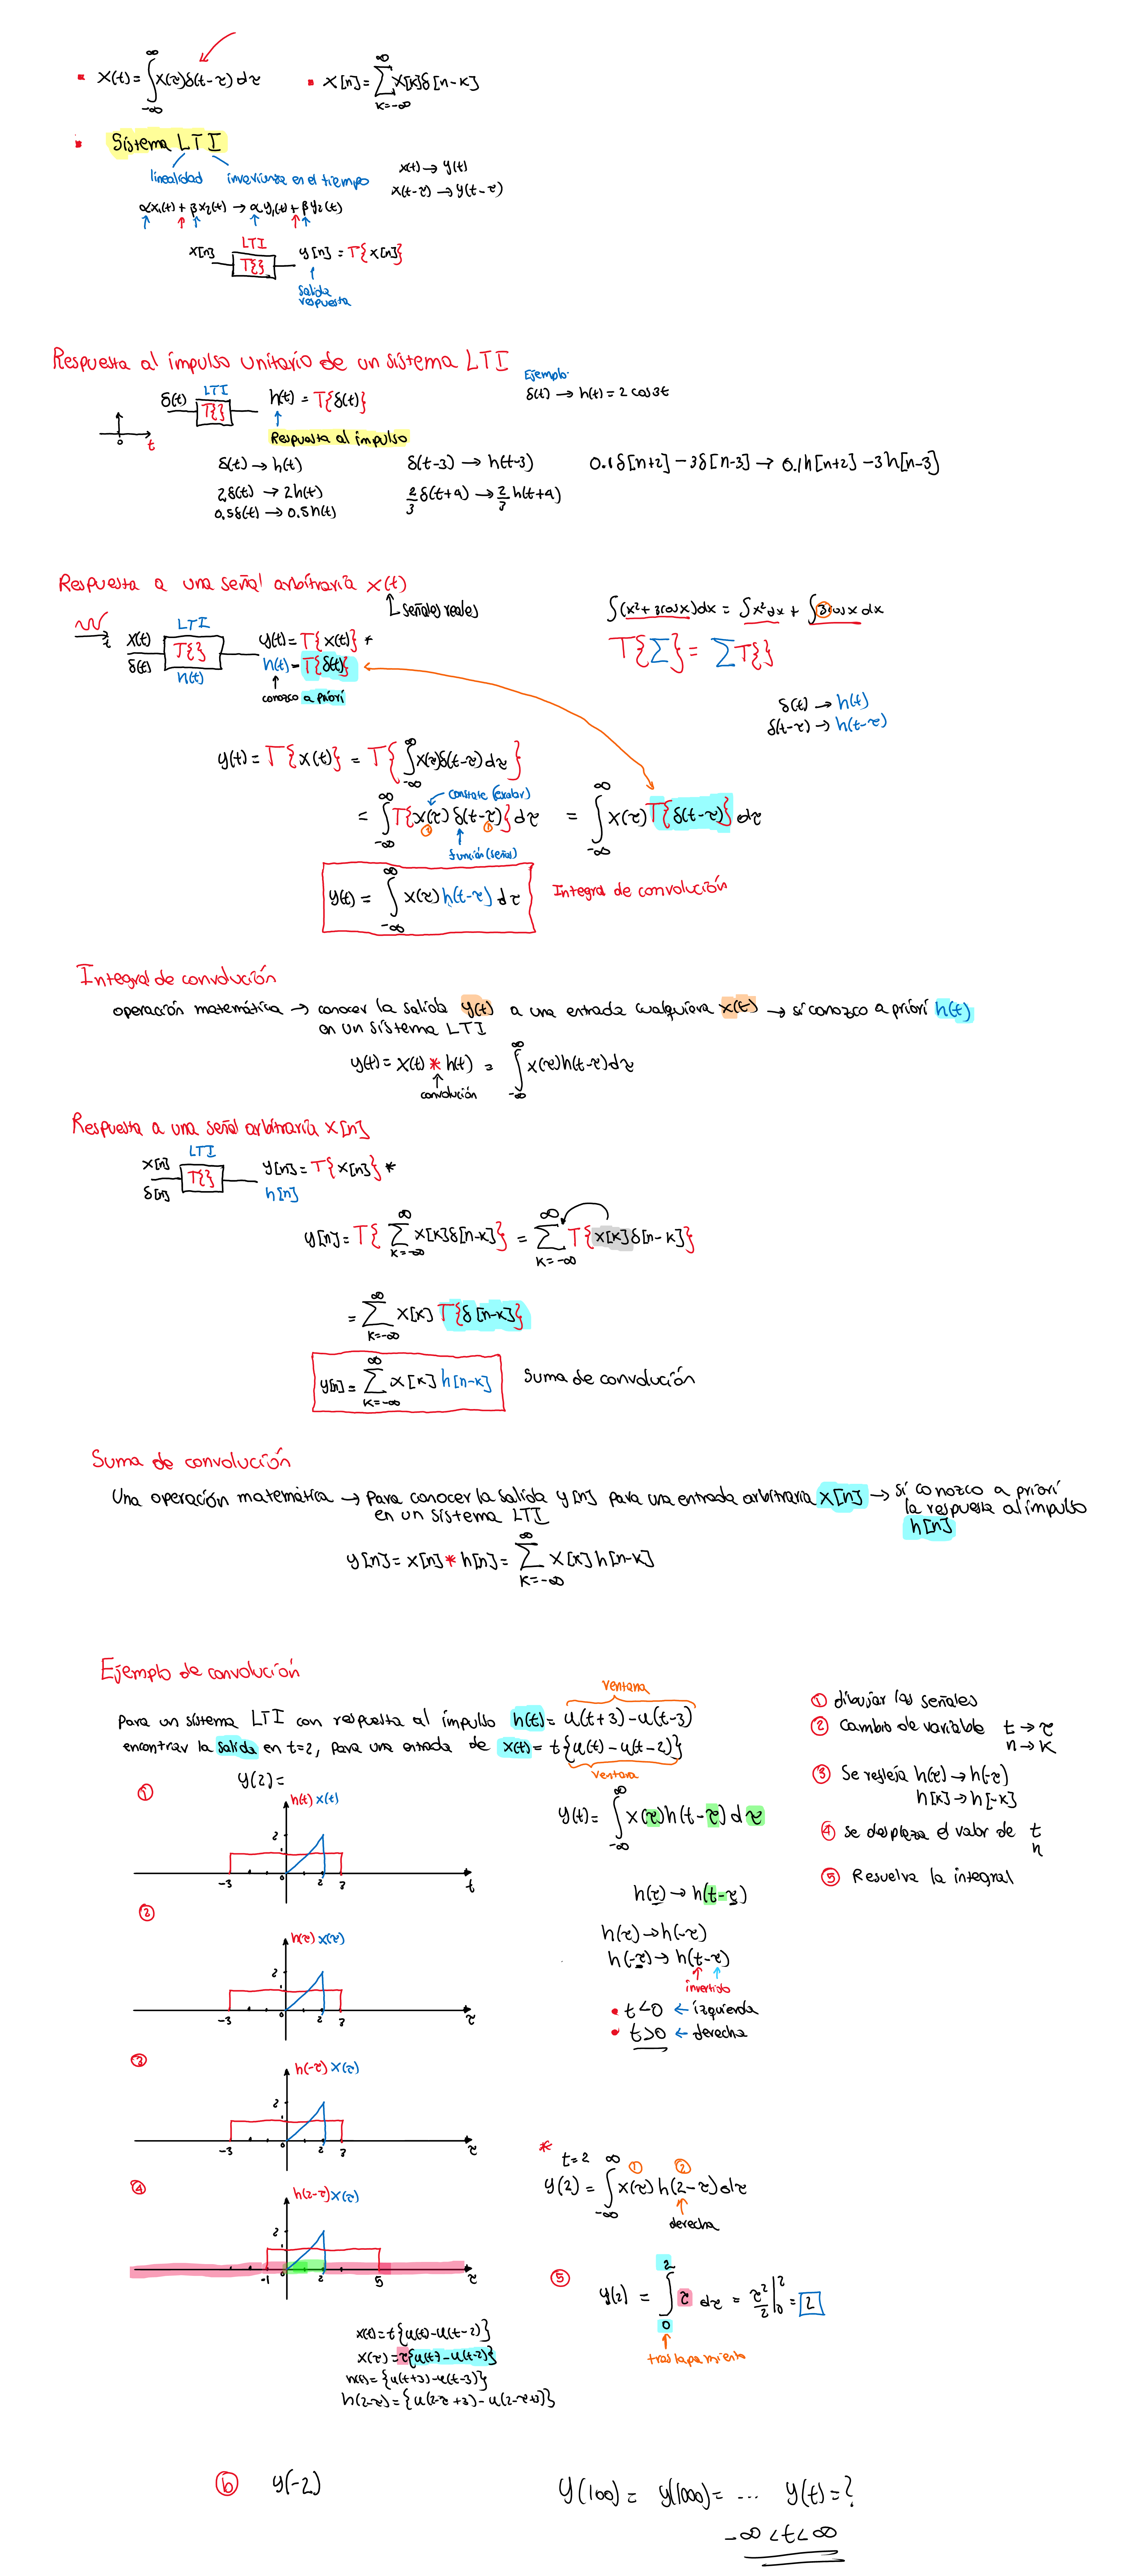 x(t) = ∫_{-∞}^{∞} x(τ)δ(t-τ) dτ
x[n] = ∑_{k=-∞}^{∞} x[k]δ[n-k]
Sistema LTI
linealidad
x(t) → y(t)
x(t-τ) → y(t-τ)
αx₁(t) + βx₂(t) → αy₁(t) + βy₂(t)
LTI
x[n] T{} y[n] = T{x[n]}
salida
respuesta
Respuesta al impulso unitario de un sistema LTI
Ejemplo:
δ(t) → h(t) = 2 cos3t
LTI
δ(t) T{} h(t) = T{δ(t)}
0 t
Respuesta al impulso
δ(t) → h(t)
δ(t-3) → h(t-3)
0.1δ[n+2] - 3δ[n-3] → 0.1h[n+2] - 3h[n-3]
2δ(t) → 2h(t)
0.5δ(t) → 0.5h(t)
Respuesta a una señal arbitraria x(t)
señales reales
∫(x²+3cosx)dx = ∫x²dx + ∫3cosx dx
T{∑} = ∑T{}
t
LTI
x(t) T{} y(t) = T{x(t)} *
δ(t) h(t) = T{δ(t)}
h(t)
conozco a priori
δ(t) → h(t)
δ(t-τ) → h(t-τ)
y(t) = T{x(t)} = T{∫_{-∞}^{∞} x(τ)δ(t-τ)dτ}
= ∫_{-∞}^{∞} T{x(τ) δ(t-τ)}dτ = ∫_{-∞}^{∞} x(τ)T{δ(t-τ)} dτ
función (señal)
y(t) = ∫_{-∞}^{∞} x(τ)h(t-τ) dτ
Integral de convolución
Integral de convolución
operación matemática → conocer la salida y(t) a una entrada cualquiera x(t) → si conozco a priori h(t)
en un sistema LTI
y(t) = x(t) * h(t) = ∫_{-∞}^{∞} x(τ)h(t-τ)dτ
convolución
Respuesta a una señal arbitraria x[n]
LTI
x[n] T{} y[n] = T{x[n]} *
δ[n] h[n]
y[n] = T{∑_{k=-∞}^{∞} x[k]δ[n-k]} = ∑_{k=-∞}^{∞} T{x[k]δ[n-k]}
= ∑_{k=-∞}^{∞} x[k] T{δ[n-k]}
y[n] = ∑_{k=-∞}^{∞} x[k] h[n-k]
Suma de convolución
Suma de convolución
Una operación matemática → para conocer la salida y[n] para una entrada arbitraria x[n] → si conozco a priori
en un sistema LTI
la respuesta al impulso
h[n]
y[n] = x[n] * h[n] = ∑_{k=-∞}^{∞} x[k] h[n-k]
Ejemplo de convolución
ventana
Para un sistema LTI con respuesta al impulso h(t) = u(t+3) - u(t-3)
encontrar la salida en t=2, para una entrada de x(t) = t{u(t) - u(t-2)}
ventana
y(2) =
① dibujar las señales
② Cambio de variable t → τ
n → k
③ Se refleja h(τ) → h(-τ)
h[k] → h[-k]
④ se desplaza el valor de t
n
⑤ Resuelva la integral
①
h(t) x(t)
2
-3 0 2 3 t
y(t) = ∫_{-∞}^{∞} x(τ)h(t-τ) dτ
h(τ) → h(t-τ)
②
h(τ) x(τ)
2
-3 0 2 3 τ
h(τ) → h(-τ)
h(-τ) → h(t-τ)
invertido
t<0 ← izquierda
t>0 ← derecha
③
h(-τ) x(τ)
2
-3 0 2 3 τ
④
h(2-τ) x(τ)
2
-1 2 5 τ
*
t=2
① ②
y(2) = ∫_{-∞}^{∞} x(τ) h(2-τ) dτ
derecha
⑤ y(2) = ∫_{0}^{2} τ dτ = τ²/2 |₀² = 2
traslapamiento
x(t) = t{u(t) - u(t-2)}
x(τ) = τ{u(τ) - u(τ-2)}
h(t) = {u(t+3) - u(t-3)}
ⓑ y(-2)
y(100) = y(1000) = ... y(t) = ?
-∞ < t < ∞